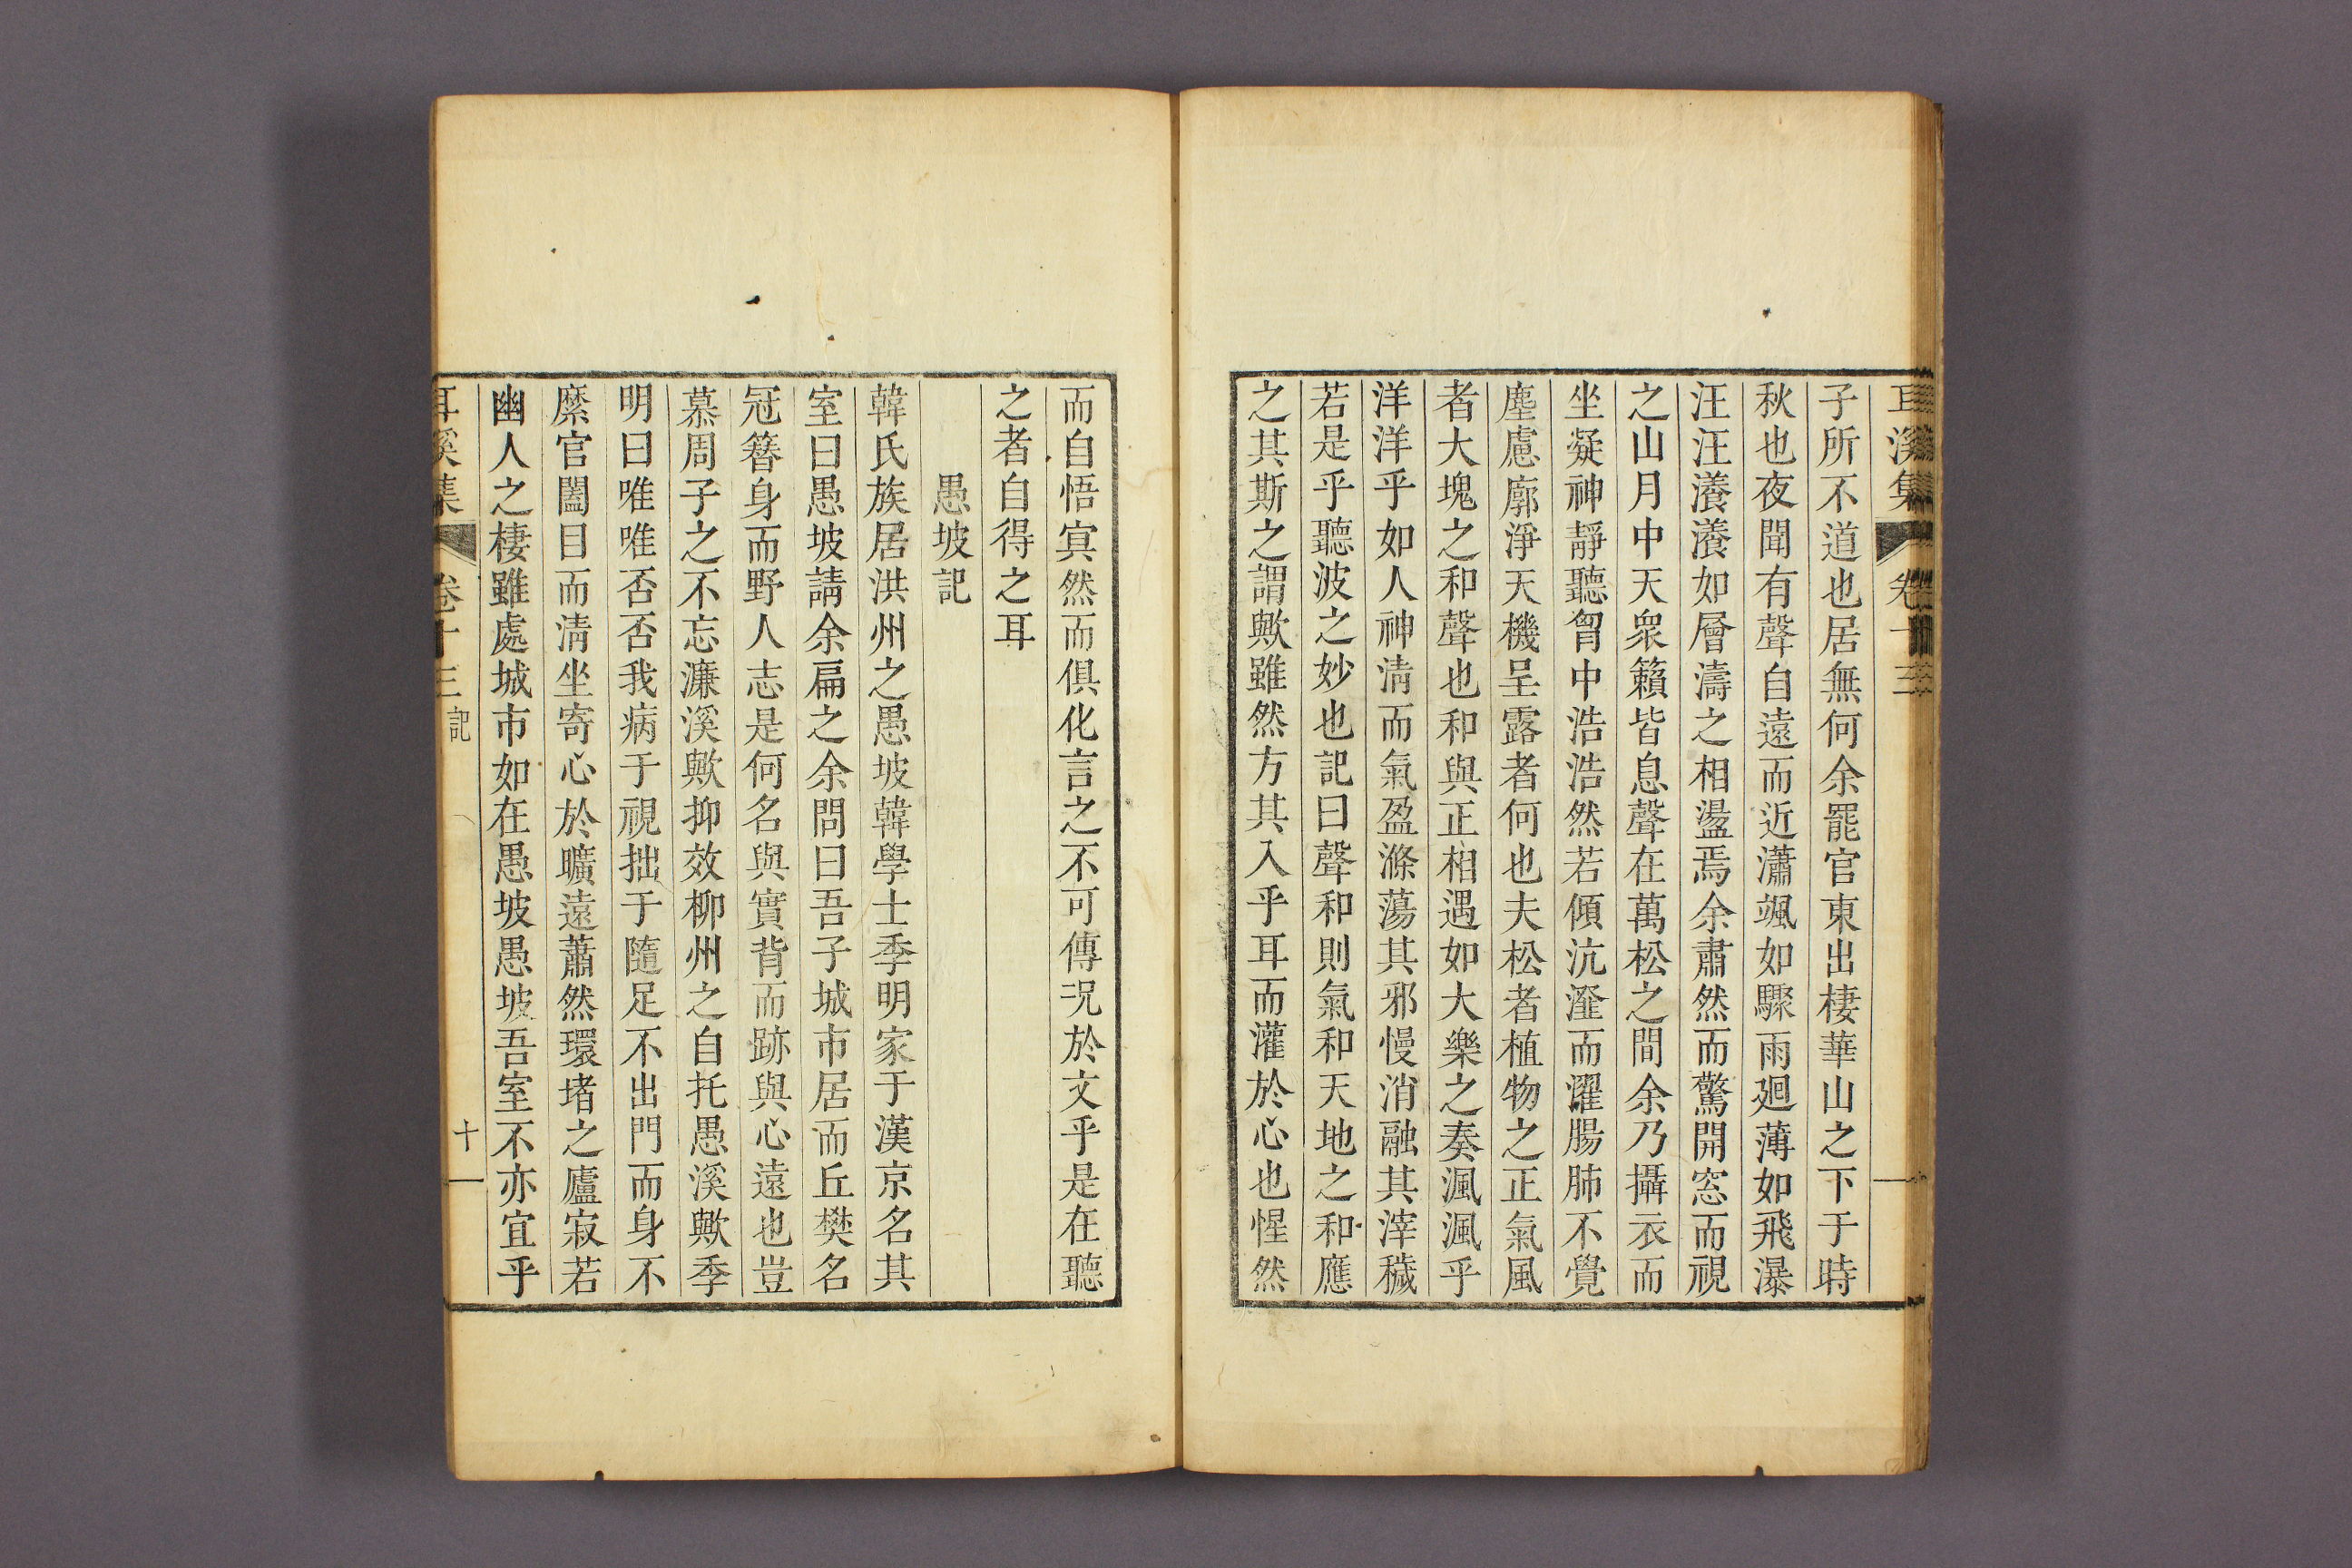 耳溪集 卷十三
子所不道也居無何余罷官東出棲華山之下于時
秋也夜聞有聲自遠而近瀟颯如驟雨廻薄如飛瀑
汪汪瀁瀁如層濤之相盪焉余肅然而驚開窓而視
之山月中天衆籟皆息聲在萬松之間余乃攝衣而
坐凝神靜聽胷中浩浩然若傾沆瀣而濯腸肺不覺
塵慮廓淨天機呈露者何也夫松者植物之正氣風
者大塊之和聲也和與正相遇如大樂之奏渢渢乎
洋洋乎如人神淸而氣盈滌蕩其邪慢消融其滓穢
若是乎聽波之妙也記曰聲和則氣和天地之和應
之其斯之謂歟雖然方其入乎耳而灌於心也惺然
而自悟寘然而俱化言之不可傳况於文乎是在聽
之者自得之耳
愚坡記
韓氏族居洪州之愚坡韓學士季明家于漢京名其
室曰愚坡請余扁之余問曰吾子城市居而丘樊名
冠簪身而野人志是何名與實背而跡與心遠也豈
慕周子之不忘濂溪歟抑效柳州之自托愚溪歟季
明曰唯唯否否我病于視拙于隨足不出門而身不
縻官闔目而淸坐寄心於曠遠蕭然環堵之廬寂若
幽人之棲雖處城市如在愚坡愚坡吾室不亦宜乎
耳溪集 卷十三 記 十一